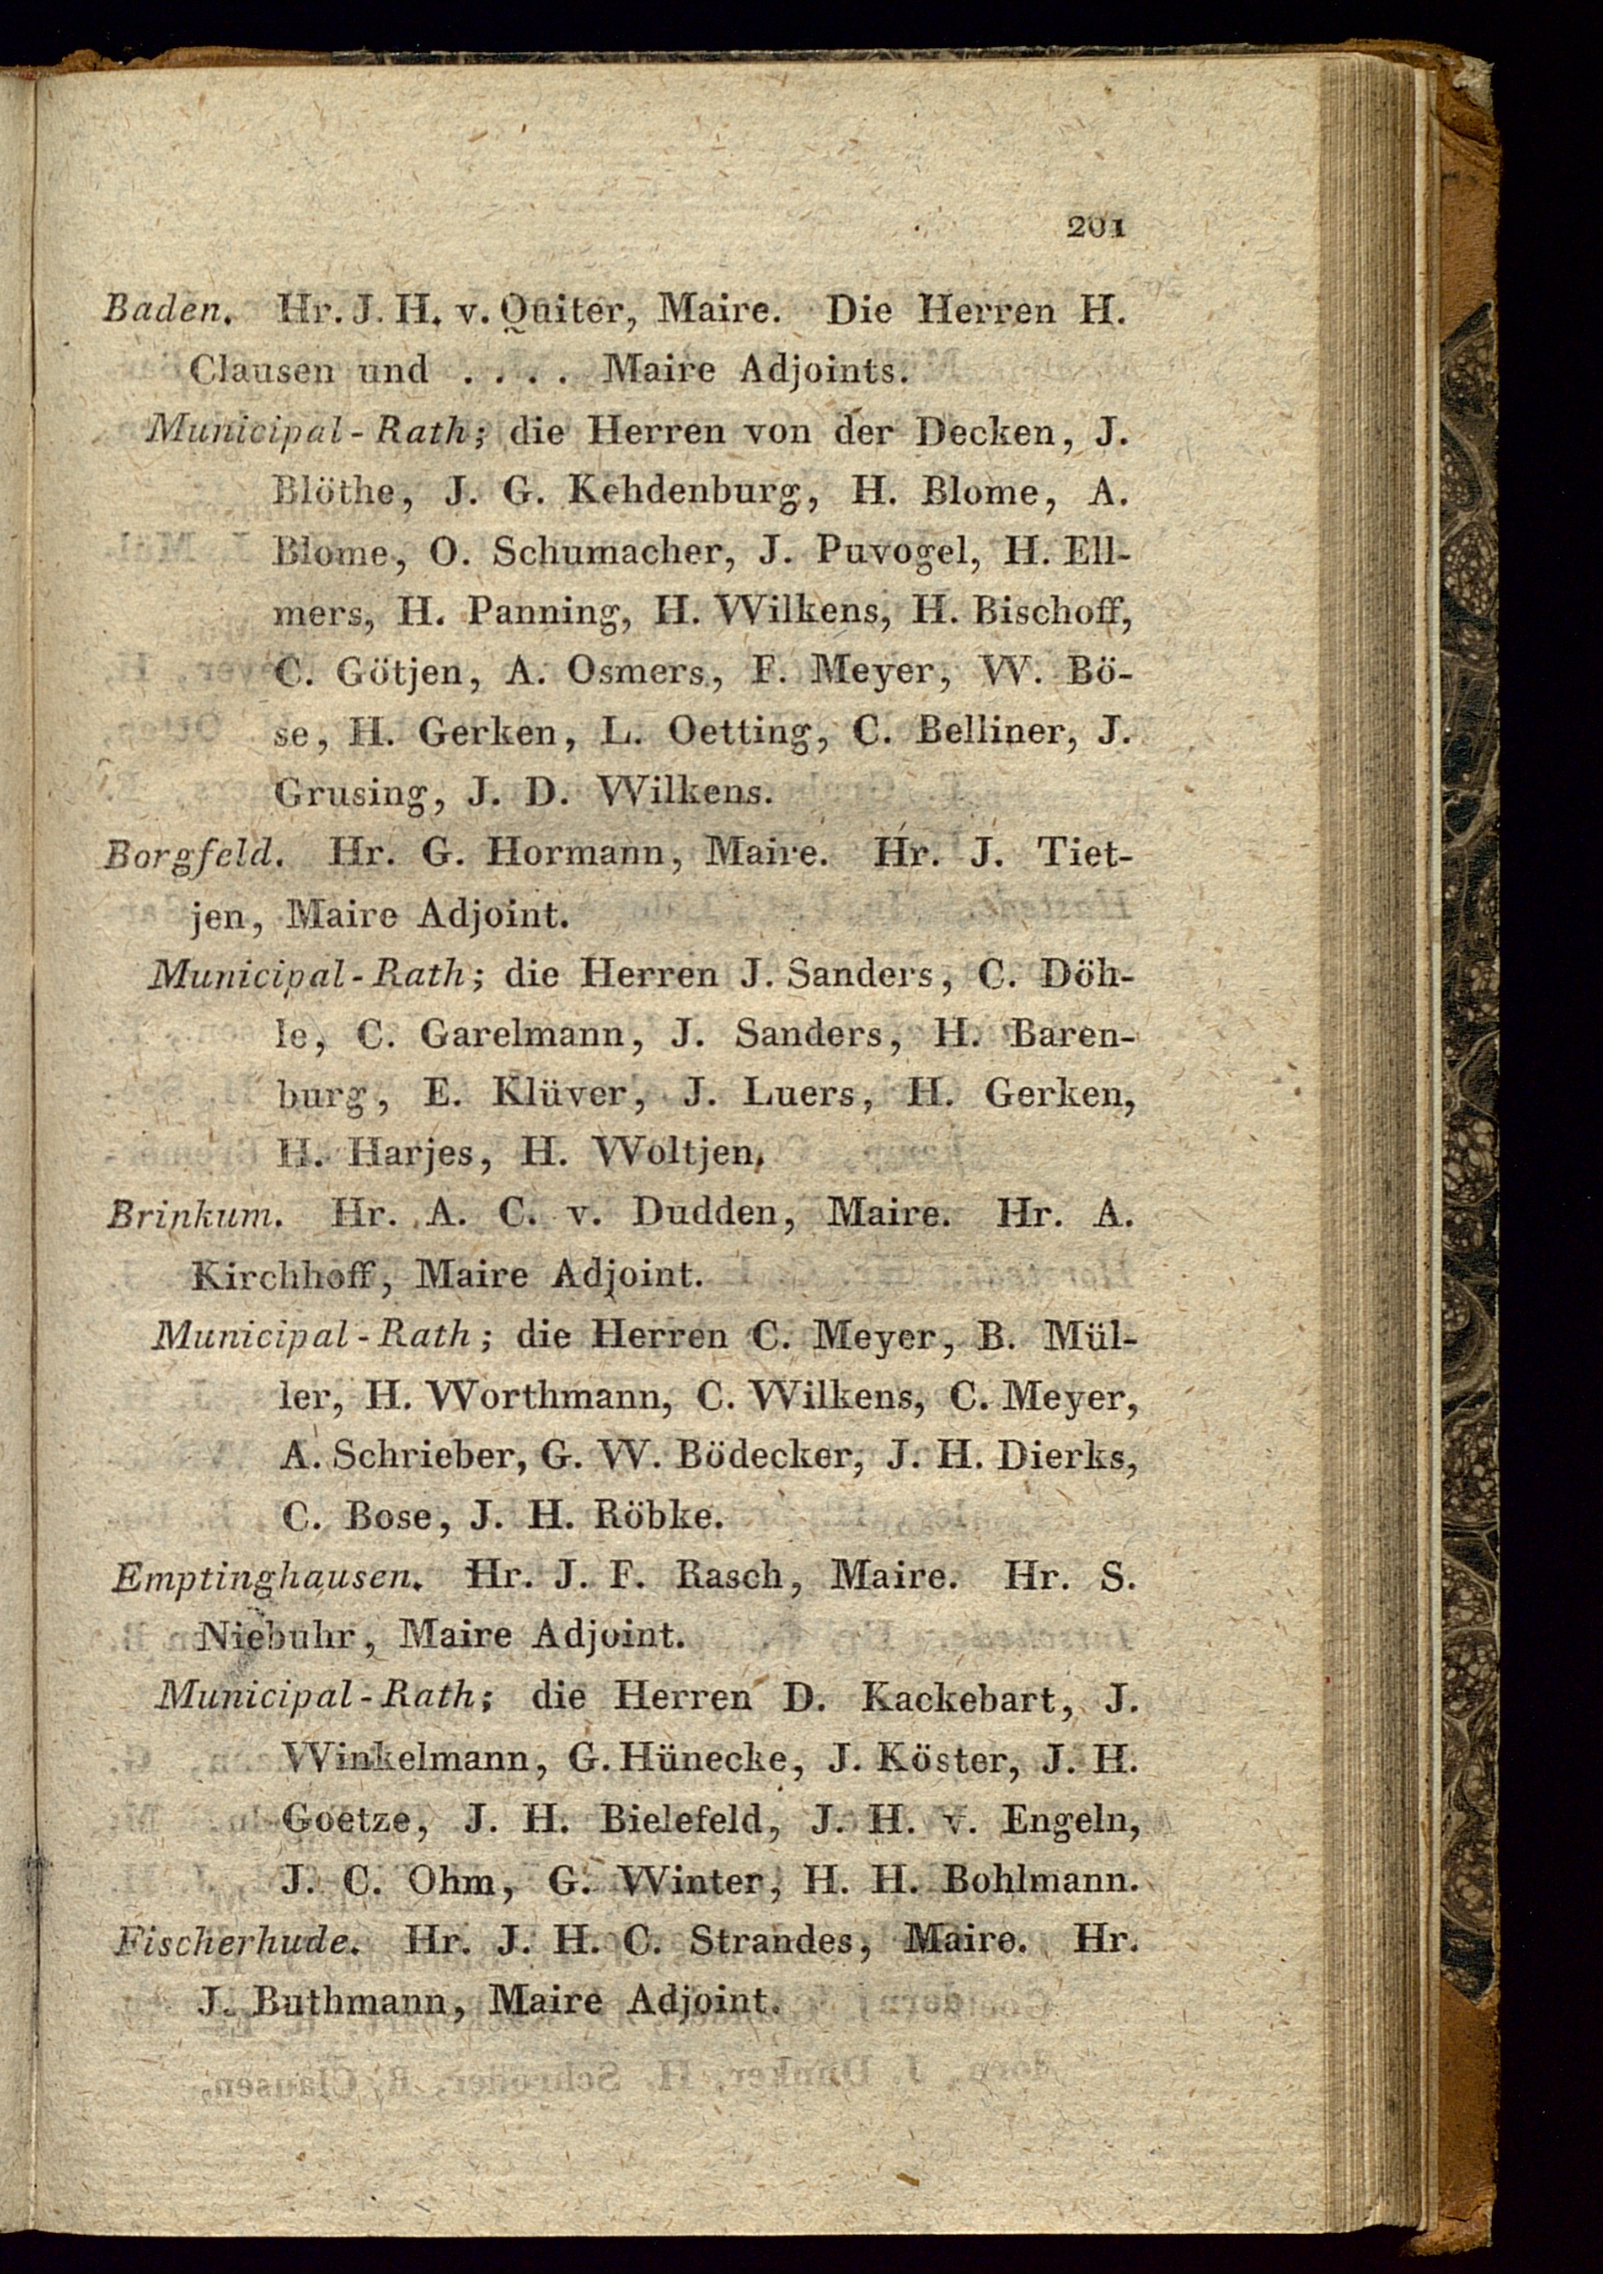 201
Baden. Hr. J. H. v. Quiter, Maire. Die Herren H.
Clausen und . . . . Maire Adjoints.
Municipal-Rath; die Herren von der Decken, J.
Blöthe, J. G. Kehdenburg, H. Blome, A.
Blome, O. Schumacher, J. Puvogel, H. Ell-
mers, H. Panning, H. Wilkens, H. Bischoff,
C. Götjen, A. Osmers, F. Meyer, W. Bö-
se, H. Gerken, L. Oetting, C. Belliner, J.
Grusing, J. D. Wilkens.
Borgfeld. Hr. G. Hormann, Maire. Hr. J. Tiet-
jen, Maire Adjoint.
Municipal-Rath; die Herren J. Sanders, C. Döh-
le, C. Garelmann, J. Sanders, H. Baren-
burg, E. Klüver, J. Luers, H. Gerken,
H. Harjes, H. Woltjen.
Brinkum. Hr. A. C. v. Dudden, Maire. Hr. A.
Kirchhoff, Maire Adjoint.
Municipal-Rath; die Herren C. Meyer, B. Mül-
ler, H. Worthmann, C. Wilkens, C. Meyer,
A. Schrieber, G. W. Bödecker, J. H. Dierks,
C. Bose, J. H. Röbke.
Emptinghausen. Hr. J. F. Rasch, Maire. Hr. S.
Niebuhr, Maire Adjoint.
Municipal-Rath; die Herren D. Kackebart, J.
Winkelmann, G. Hünecke, J. Köster, J. H.
Goetze, J. H. Bielefeld, J. H. v. Engeln,
J. C. Ohm, G. Winter, H. H. Bohlmann.
Fischerhude. Hr. J. H. C. Strandes, Maire. Hr.
J. Buthmann, Maire Adjoint.